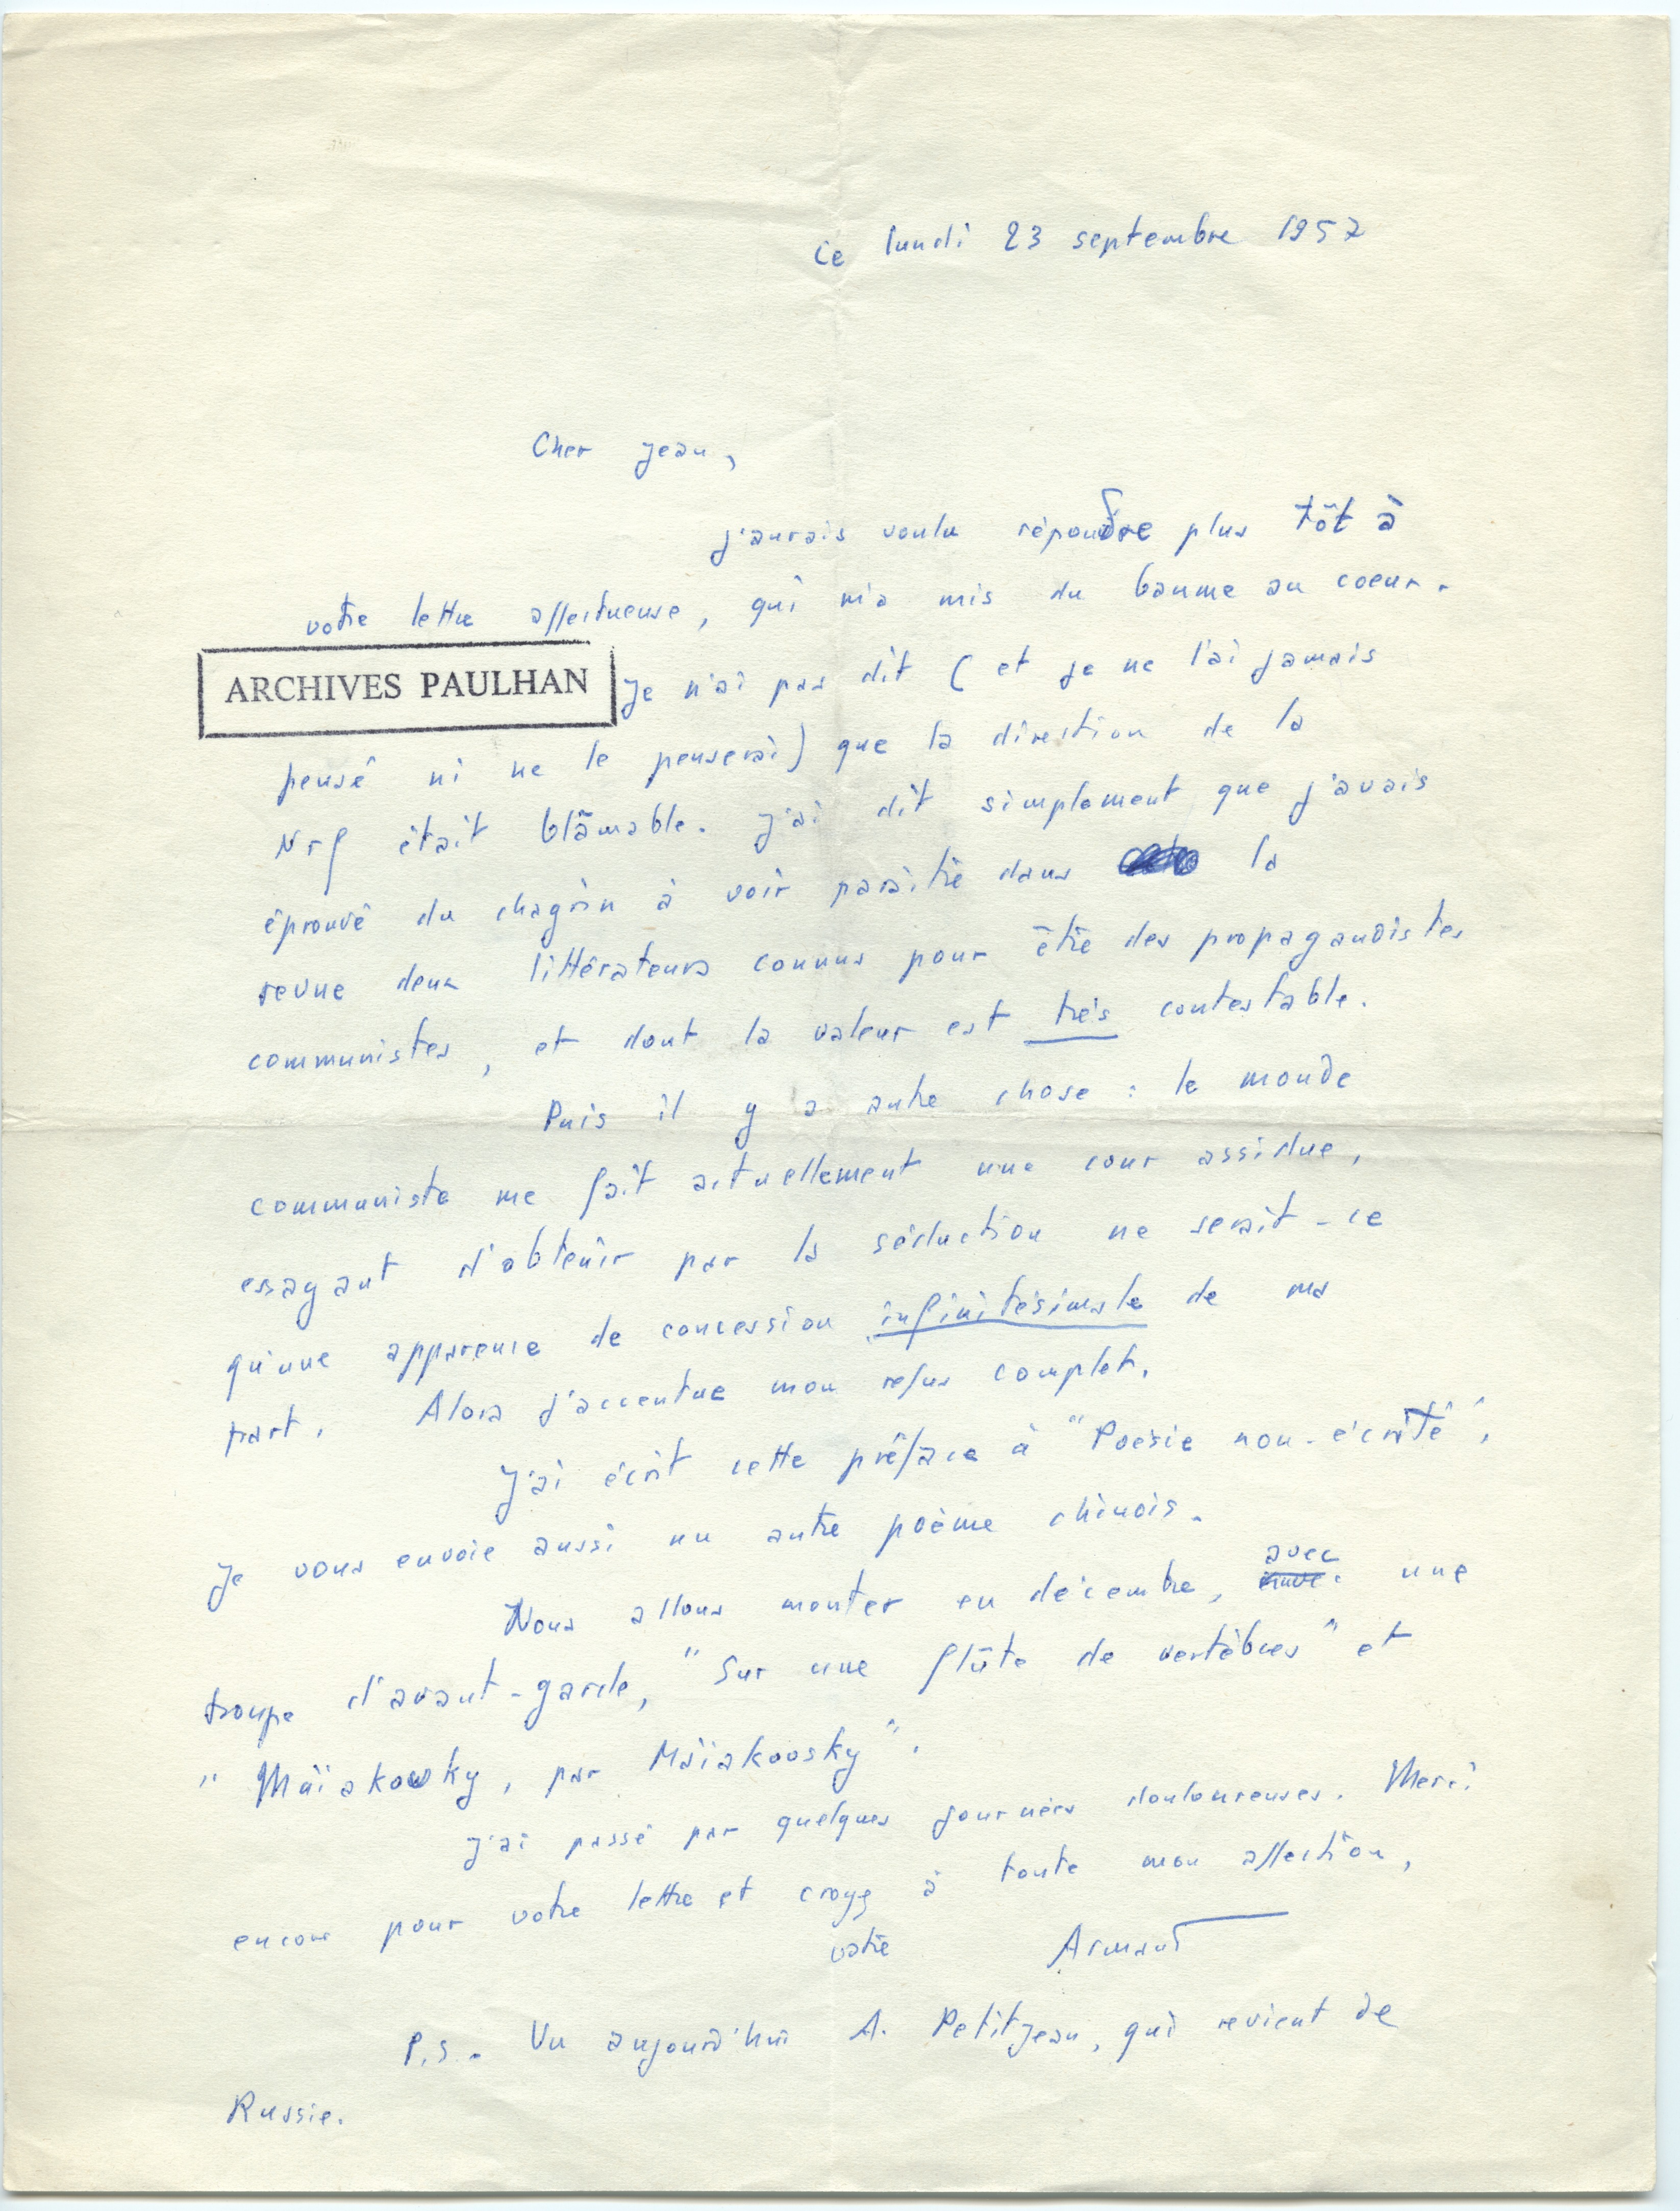 ce lundi 23 septembre 1957
Cher Jean,
j'aurais voulu répondre plus tôt à
votre lettre affectueuse, qui m'a mis du baume au coeur.
ARCHIVES PAULHAN
Je n'ai pas dit (et je ne l'ai jamais
pensé ni ne le penserai) que la direction de la
Nrf était blâmable. J'ai dit simplement que j'avais
éprouvé du chagrin à voir paraître dans la
revue deux littérateurs connus pour être des propagandistes
communistes, et dont la valeur est très contestable.
Puis il y a autre chose : le monde
communiste me fait actuellement une cour assidue,
essayant d'obtenir par la séduction ne serait-ce
qu'une apparence de concession infinitésimale de ma
part. Alors j'accentue mon refus complet.
J'ai écrit cette préface à "Poésie non-écrite",
Je vous envoie aussi un autre poème chinois.
Nous allons monter en décembre, avec une
troupe d'avant-garde, "Sur une flûte de vertèbres" et
"Maïakowky, par Maïakovsky".
J'ai passé par quelques journées douloureuses. Merci
encore pour votre lettre et croyez à toute mon affection,
votre Armand
P.S. Vu aujourd'hui A. Petitjean, qui revient de
Russie.